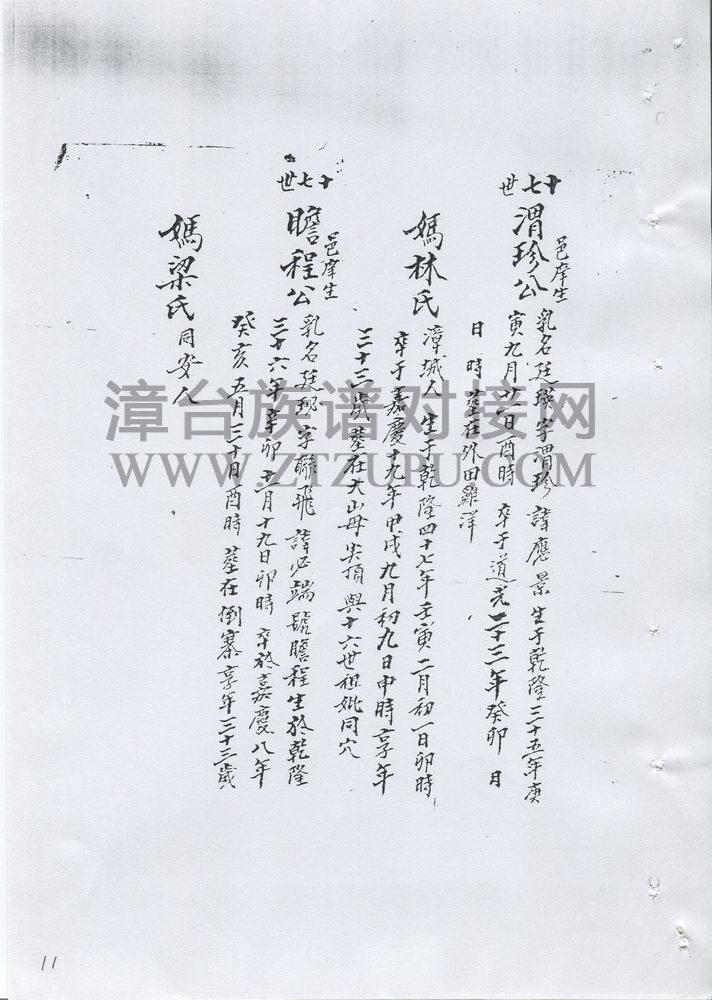 十七世
邑庠生
渭珍公
乳名廷瑛字渭珍 諱應景 生于乾隆三十五年庚
寅九月廿一日酉時 卒于道光二十三年癸卯 月
日 時 塟在珠田雞洋
媽林氏
漳城人 生于乾隆四十七年壬寅二月初一日卯時
卒于嘉慶十九年甲戌九月初九日申時享年
三十三歲 塟在大山母尖頂 與十六世祖妣同穴
十七世
邑庠生
瞻程公
乳名廷 字聯飛 諱必端 號瞻程生於乾隆
三十六年辛卯十二月十九日卯時 卒於嘉慶八年
癸亥五月三十日酉時 塟在倒寨 享年三十三歲
媽梁氏 同安人
漳台族谱对接网
WWW.ZTZUPU.COM
11